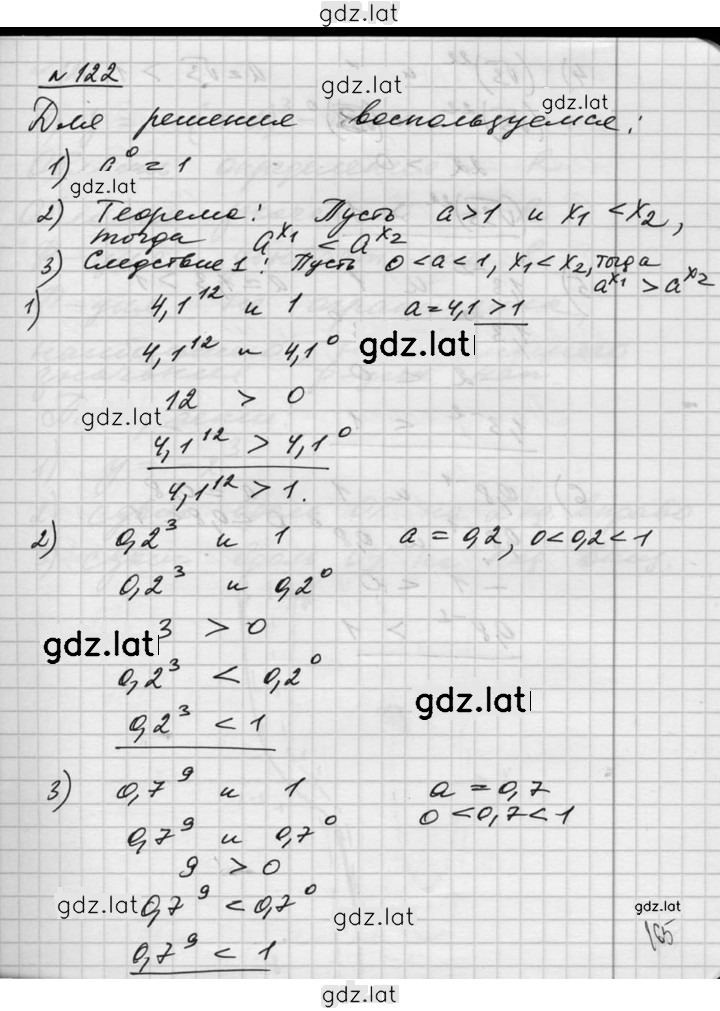 gdz.lat
№ 122
gdz.lat
gdz.lat
Для решения воспользуемся:
1) a⁰ = 1
gdz.lat
2) Теорема: Пусть a>1 и x₁ < x₂,
тогда a^x₁ < a^x₂
3) Следствие 1: Пусть 0<a<1, x₁<x₂, тогда
a^x₁ > a^x₂
1) 4,1¹² и 1 a=4,1>1
4,1¹² и 4,1⁰
gdz.lat
12 > 0
gdz.lat
4,1¹² > 4,1⁰
4,1¹² > 1.
2) 0,2³ и 1 a = 0,2, 0<0,2<1
0,2³ и 0,2⁰
3 > 0
gdz.lat
0,2³ < 0,2⁰
gdz.lat
0,2³ < 1
3) 0,7⁹ и 1 a = 0,7
0<0,7<1
0,7⁹ и 0,7⁰
9 > 0
gdz.lat
0,7⁹ < 0,7⁰
gdz.lat
gdz.lat
0,7⁹ < 1
165
gdz.lat